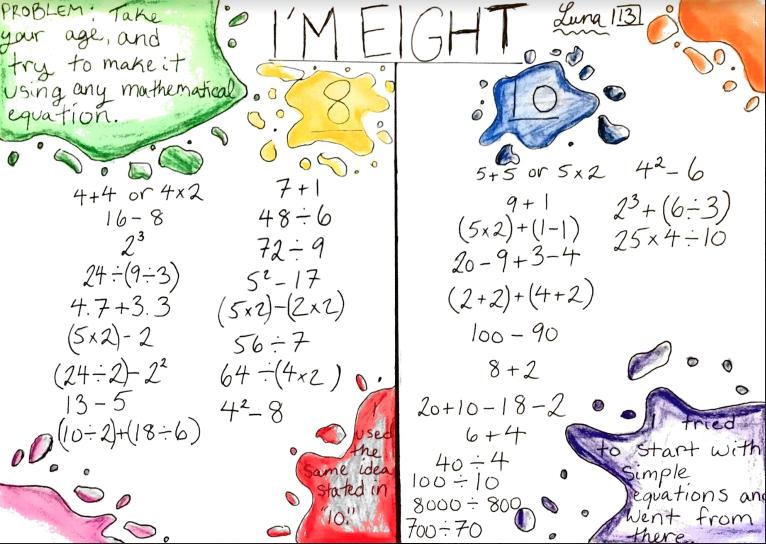 PROBLEM: Take
your age, and
try to make it
using any mathematical
equation.
I'M EIGHT
Luna 113
8
4+4 or 4×2
16-8
2³
24÷(9÷3)
4.7+3.3
(5×2)-2
(24÷2)-2²
13-5
(10÷2)+(18÷6)
7+1
48÷6
72÷9
5²-17
(5×2)-(2×2)
56÷7
64÷(4×2)
4²-8
I
used
the
same idea
stated in
"10."
10
5+5 or 5×2
9+1
(5×2)+(1-1)
20-9+3-4
(2+2)+(4+2)
100-90
8+2
20+10-18-2
6+4
40÷4
100÷10
8000÷800
700÷70
4²-6
2³+(6÷3)
25×4÷10
I tried
to start with
simple
equations an
went from
there.